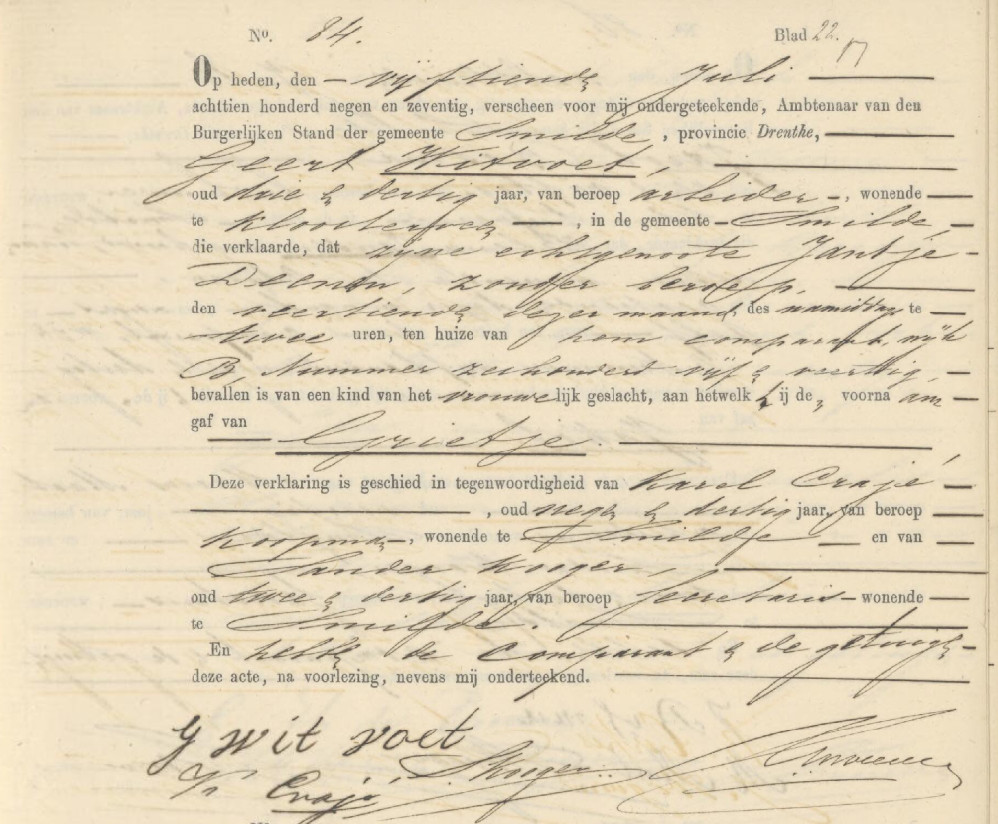 No. 84. Blad 22.
Op heden, den vijftiende Juli
achttien honderd negen en zeventig, verscheen voor mij ondergeteekende, Ambtenaar van den
Burgerlijken Stand der gemeente Smilde, provincie Drenthe,
Geert Witvoet,
oud drie & dertig jaar, van beroep arbeider, wonende
te Kloosterveen, in de gemeente Smilde,
die verklaarde, dat zijne echtgenoote Jantje
zonder beroep,
den veertiende dezer maand, des namiddag te
twee uren, ten huize van hem comparant, wijk
B, Nummer zeshonderd vijf & veertig,
bevallen is van een kind van het vrouwelijk geslacht, aan hetwelk hij de voornaam
gaf van
Grietje.
Deze verklaring is geschied in tegenwoordigheid van Karel Crajé,
, oud negen & dertig jaar, van beroep
Koopman, wonende te Smilde en van
Sander Kooger,
oud twee & dertig jaar, van beroep secretaris wonende
te Smilde.
En hebben de comparant & de getuigen
deze acte, na voorlezing, nevens mij onderteekend.
G wit voet
Kl Crajé SKooger